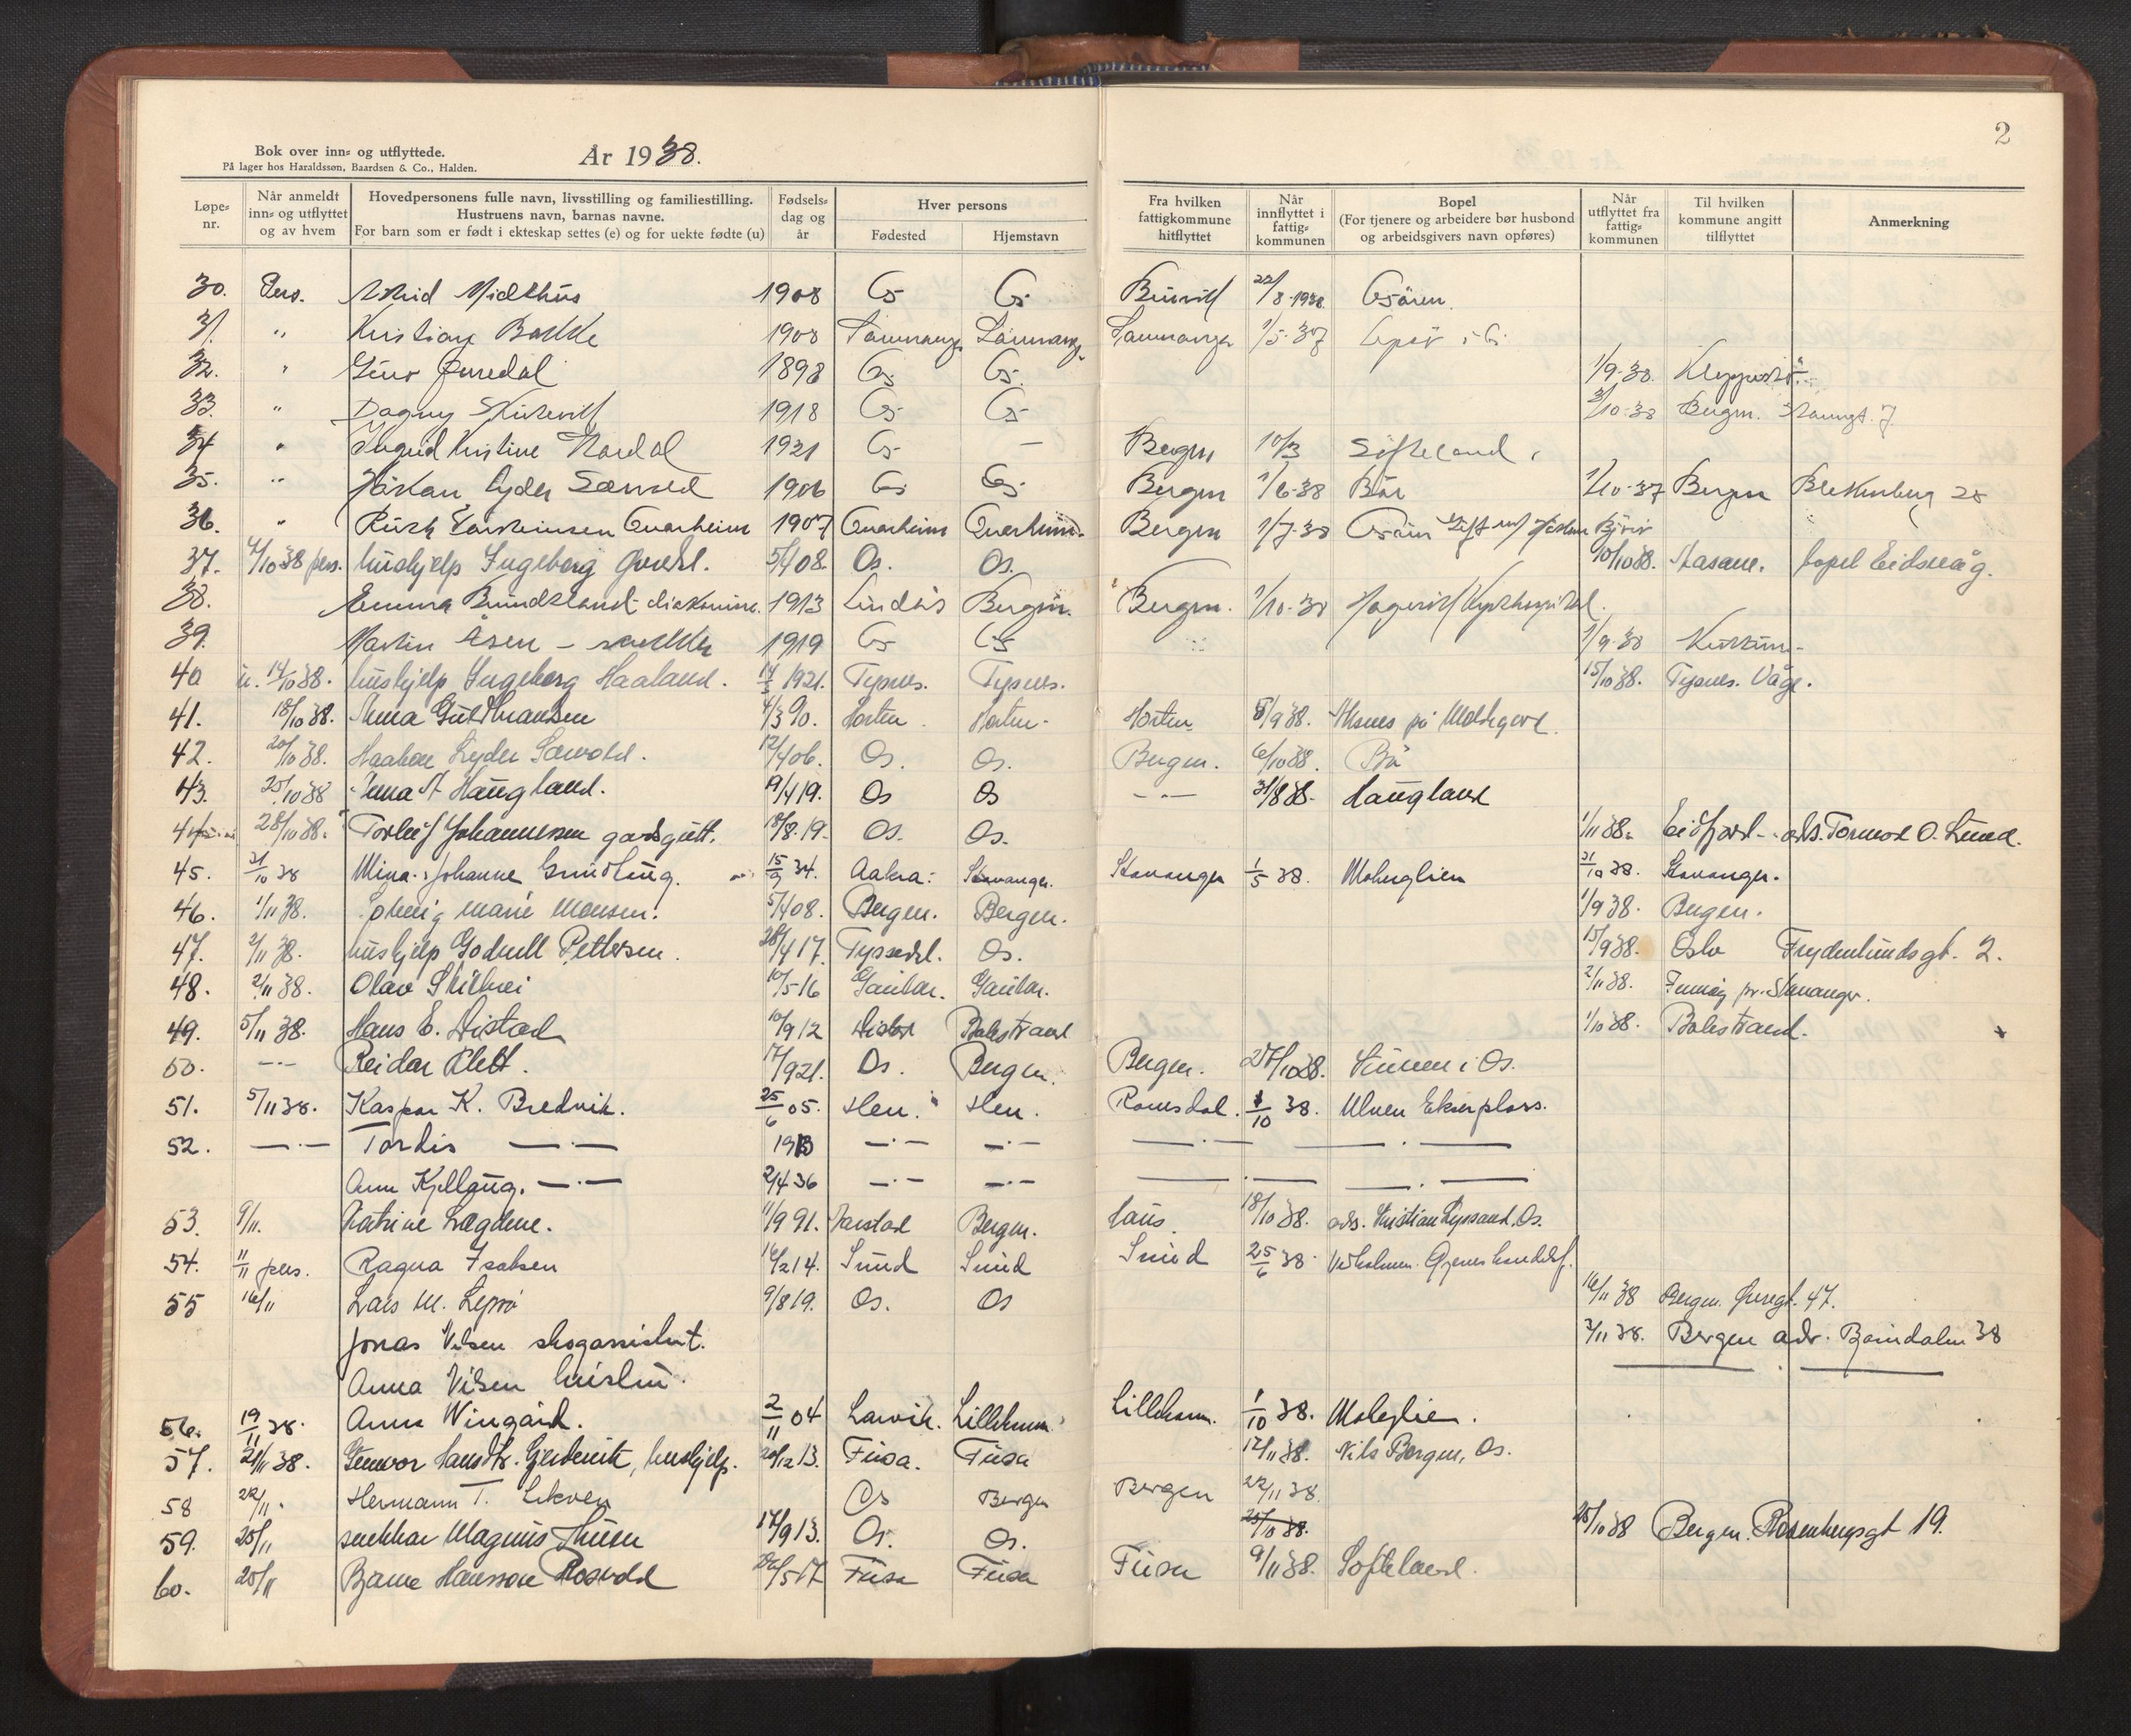 2
Bok over inn- og utflyttede.
På lager hos Haraldssøn, Baardsen & Co., Halden.
År 1938.
Løpe-nr. Når anmeldt inn- og utflyttet og av hvem Hovedpersonens fulle navn, livsstilling og familiestilling. Hustruens navn, barnas navne. For barn som er født i ekteskap settes (e) og for uekte fødte (u) Fødsels-dag og år Hver persons Fødested Hjemstavn Fra hvilken fattigkommune hitflyttet Når innflyttet i fattig-kommunen Bopel (For tjenere og arbeidere bør husbond og arbeidsgivers navn opføres) Når utflyttet fra fattig-kommunen Til hvilken kommune angitt tilflyttet Anmerkning
30. Pers. Astrid Midthus 1908 Os Os 22/8-1938 Osøren.
31. " Kristian Bakke 1908 Samnanger Samnanger Samnanger 1/5-37 Lepsø i Os
32. " Øvredal 1898 Os Os 1/9-38.
33. " Dagny 1918 Os Os 3/10-38 Bergen.
34 " Ingrid Kristine Nordal 1921 Os — Bergen 10/3 Søfteland
35. " Håkon Lyder Sævold 1906 Os Os Bergen 1/6-38 Bø 1/10-37 Bergen Blekenberg 28
36. " Ruth Torsteinsen Kvarheim 1907 Bergen 1/7-38 Osøren
37. 4/10 38 pers. hushjelp Ingeborg Øvredal. 5/4 08. Os. Os. 10/10 38. Aasane. bopel Eidsvåg.
38. Emma Brundtland diakonisse. 1913 Lindås Bergen. Bergen. 1/10-38 Hagevik Kysthospital.
39. Martin Åsen - snekker 1919 Os Os 1/9-38
40 u. 14/10 38. hushjelp Ingeborg Haaland. 14/3 1921. Tysnes. Tysnes. 15/10 38. Tysnes. Våge.
41. 18/10 38. Anna Guldbransen 4/3 90. Horten Horten. Horten 8/9 38. på Moldegård.
42. 20/10 38. Haakon Lyder Sævold. 12/4 06. Os. Os. Bergen. 6/10 38. Bø
43. 25/10 38 Anna A Haugland. 9/4 19. Os Os — — 31/8 38. Haugland
44 28/10 38. Torleif Johannessen gardsgutt. 18/8-19. Os. Os. 1/11 38. Eidfjord - adr. Tormod O. Lund.
45. 31/10 38 Mina Johanne Grindling. 15/9 34. Aakra. Stavanger. Stavanger 1/5 38. Moberglien 31/10 38. Stavanger.
46. 1/11 38. Solveig Marie Monsen. 5/4 08. Bergen. Bergen. 1/9 38. Bergen.
47. 2/11 38. hushjelp Godrull Pettersen. 28/4 17. Tyssedal. Os. 15/9 38. Oslo Frydenlundsgt. 2.
48. 2/11 38. Olav 10/5 16 Gaular. Gaular. 2/11 38. pr. Stavanger.
49. 5/11 38. Hans E. Distad 10/9 12 Balestrand 1/10 38. Balestrand.
50. —·— Reidar Klett. 17/9 21. Os. Bergen. Bergen. 28/10 38. i Os.
51. 5/11 38. Kaspar K. Bredvik. 25/6 05. Hen. Hen. Romsdal. 1/10 38. Ulven Ekserplass.
52. —·— Tordis —·— 1913 —·— —·— —·— —·—
Ann Kjellaug. —·— 2/4 36 —·— —·— —·— —·—
53. 9/11. Katrine Lægdene. 11/9 91. Bergen. Haus. 18/10 38. adr. Kristian Lyssand, Os.
54. 11/11 pers. Ragna Isaksen 16/2 14. Sund Sund Sund 25/6 38.
55 16/11 Lars M. Lepsø 9/8 19. Os. Os 16/11 38 Bergen. Øvregt. 47.
Jonas Vilsen skogassistent. 2/11 38. Bergen adr. Bjørndalen 38
Anna Vilsen hustru. —·—
56. 19/11 38. Anna Wingård. 2/11 04 Larvik. Lilleham. Lilleham. 1/10 38. Moberglien.
57. 21/11 38. Gunvor Hansdtr. Gjerdevik, hushjelp. 20/12 13. Fusa. Fusa 12/11 38. Nils Bergen, Os.
58 22/11. Hermann T. Lekven Os Bergen Bergen 22/11 38.
59. 25/11 snekker Magnus Thuen 17/9 13. Os. Os. 25/10 38. 25/10 38 Bergen. Rosenbergsgt 19.
60. 25/11 Bjarne Hansson Rosvold 26/5 17 Fusa Fusa Fusa 9/11 38. Søfteland.